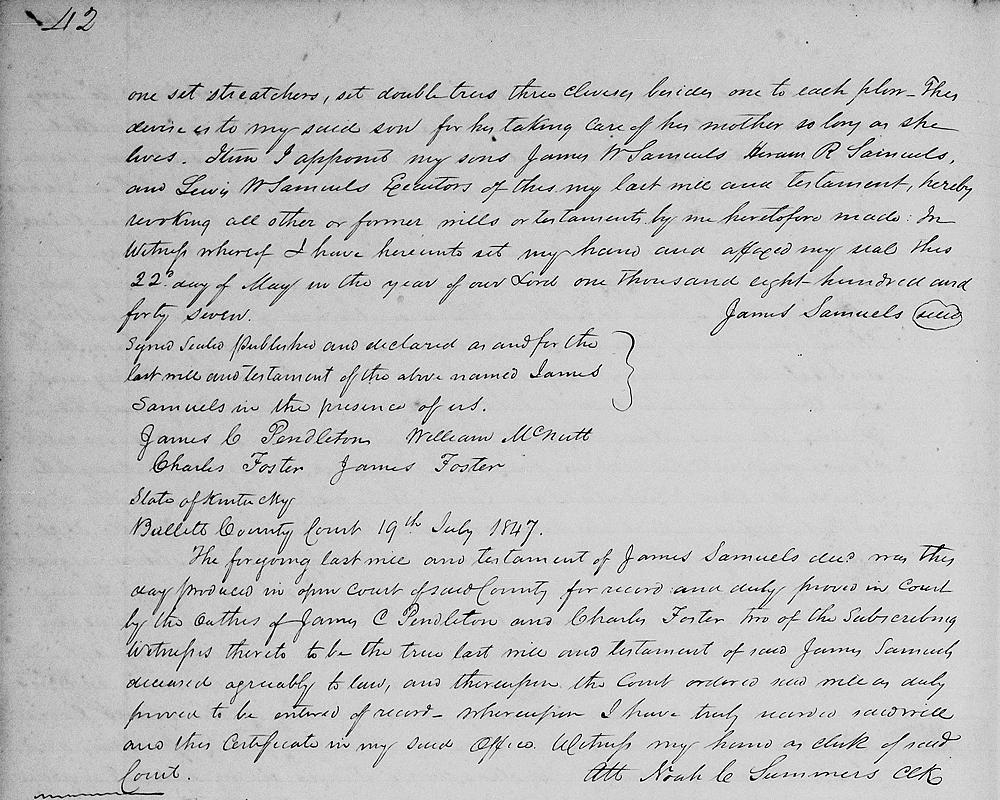 42
one set streatchers, set doubletrees three clevises besides one to each plow - This
devise is to my said son for his taking care of his mother so long as she
lives. Item I appoint my sons James W Samuels Hiram R Samuels,
and Lewis W Samuels Executors of this my last will and testament, hereby
revoking all other or former wills or testaments by me heretofore made: In
Witness whereof I have hereunto set my hand and affixed my seal this
22d day of May in the year of our Lord one thousand eight hundred and
forty seven. James Samuels seal
Signed Sealed published and declared as and for the
last will and testament of the above named James
Samuels in the presence of us.
James C Pendleton William McNutt
Charles Foster James Foster
State of Kentucky
Bullitt County Court 19th July 1847.
The foregoing last will and testament of James Samuels decd was this
day produced in open court of said County for record and duly proved in Court
by the Oathes of James C Pendleton and Charles Foster two of the Subscribing
Witnesses thereto to be the true last will and testament of said James Samuels
deceased agreeably to law, and thereupon the Court ordered said will as duly
proved to be entered of record - whereupon I have truly recorded said will
and this Certificate in my said Office. Witness my hand as clerk of said
Court. Att Noah C Summers Clk